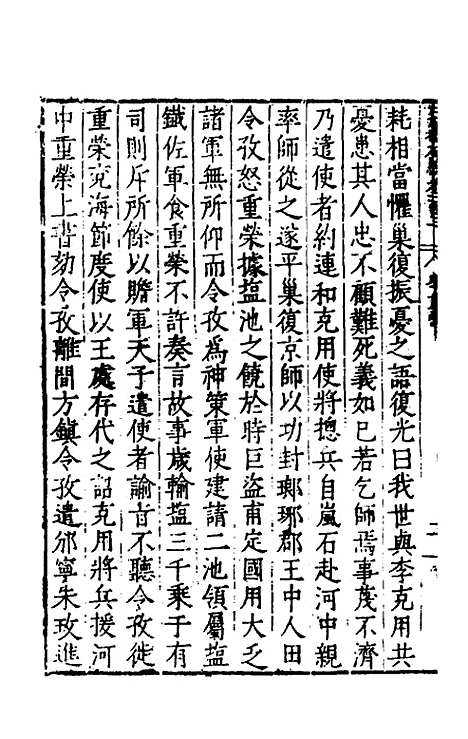 耗相當懼巢復振憂之語復光曰我世與李克用共
憂患其人忠不顧難死義如已若乞師焉事蔑不濟
乃遣使者約連和克用使將揔兵自嵐石赴河中親
率師從之遂平巢復京師以功封瑯琊郡王中人田
令孜怒重榮據塩池之饒於時巨盜甫定國用大乏
諸軍無所仰而令孜為神策軍使建請二池領屬塩
鐵佐軍食重榮不許奏言故事歲輸塩三千乘于有
司則斥所餘以贍軍天子遣使者諭旨不聽令孜徙
重榮兗海節度使以王處存代之詔克用將兵援河
中重榮上書劾令孜離間方鎮令孜遣邠寧朱玫進